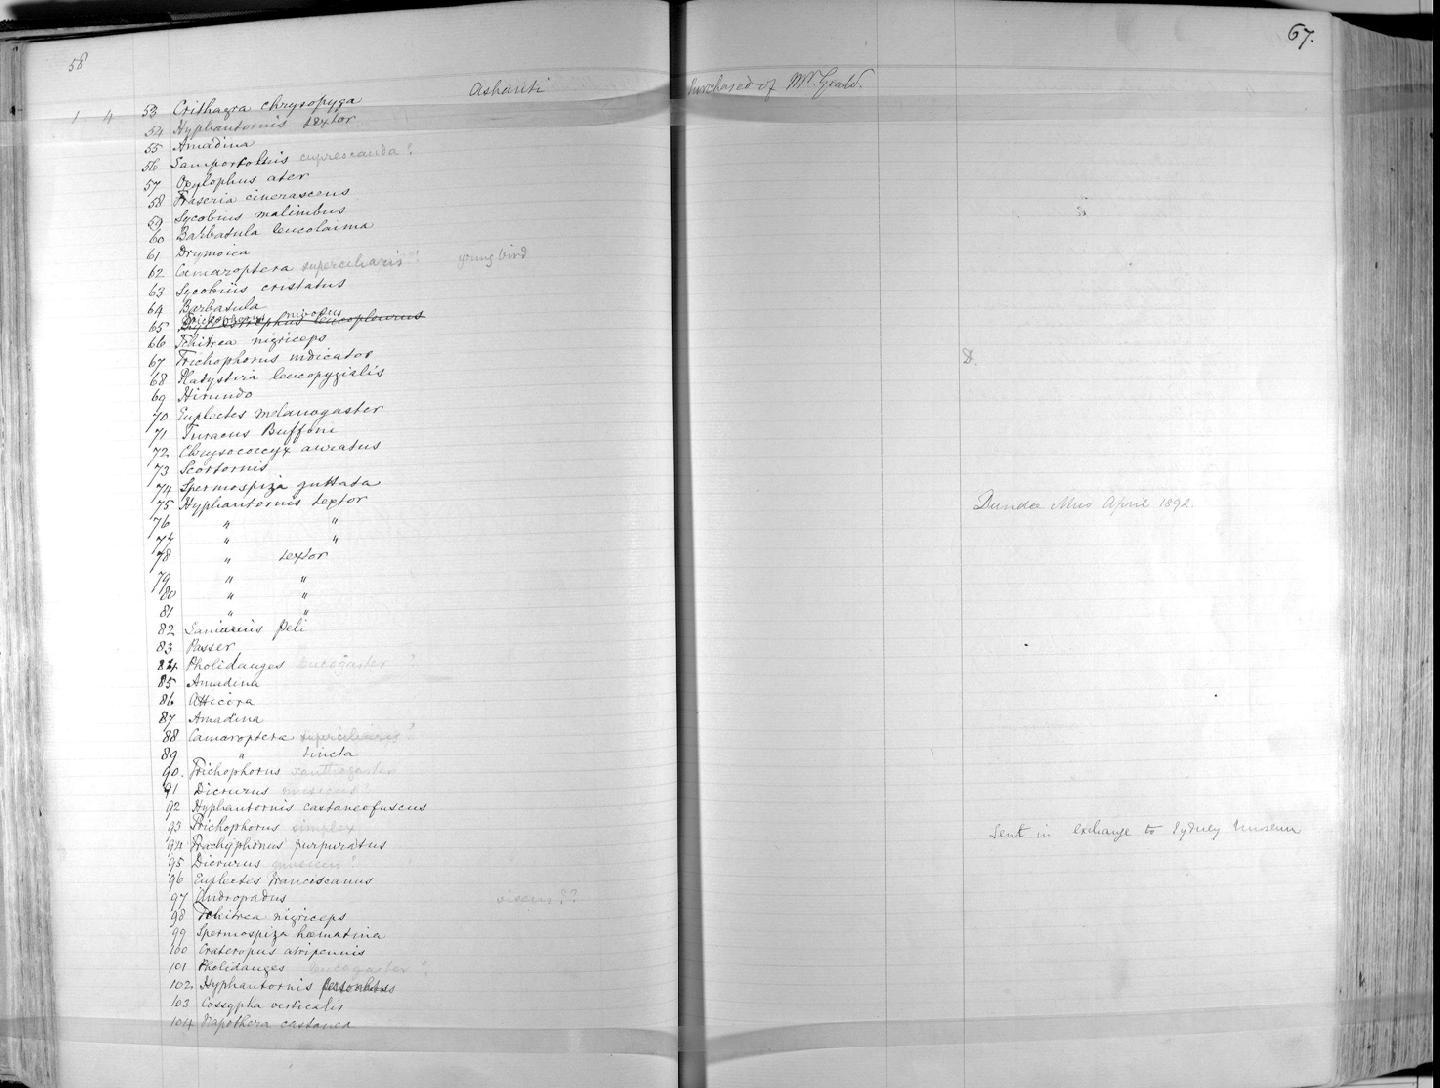 67.
58
Ashanti Purchased of Mr. Gerrard.
1 4 53 Crithagra chrysopyga
54 Hyphantornis textor
55 Amadina
56 Lamprotornis cupreocauda?
57 Oxylophus ater
58 Fraseria cinerascens
59 Sycobius malimbus
60 Barbatula leucolaima
61 Drymoica
62 Camaroptera superciliaris? young bird
63 Sycobius cristatus
64 Barbatula
65 Trichophorus nivosus
leucopleurus
66 Tchitrea nigriceps
67 Trichophorus indicator
68 Platystira leucopygialis
69 Hirundo
70 Euplectes melanogaster
71 Turacus Buffoni
72 Chrysococcyx auratus
73 Scotornis
74 Spermospiza guttata
75 Hyphantornis textor Dundee Mus April 1892.
76 " "
77 " "
78 " textor
79 " "
80 " "
81 " "
82 Laniarius Peli
83 Passer
84 Pholidauges leucogaster ?
85 Amadina
86 Atticora
87 Amadina
88 Camaroptera superciliaris?
89 " tincta
90. Trichophorus
91 Dicrurus musicus?
92 Hyphantornis castaneofuscus
93 Trichophorus simplex Sent in exchange to Sydney Museum
94 Trachyphonus purpuratus
95 Dicrurus musicus?
96 Euplectes franciscanus
97 Andropadus virens??
98 Tchitrea nigriceps
99 Spermospiza hæmatina
100 Crateropus atripennis
101 Pholidauges leucogaster?
102 Hyphantornis personatus
103 Cossypha verticalis
104 Diaphorophyia castanea